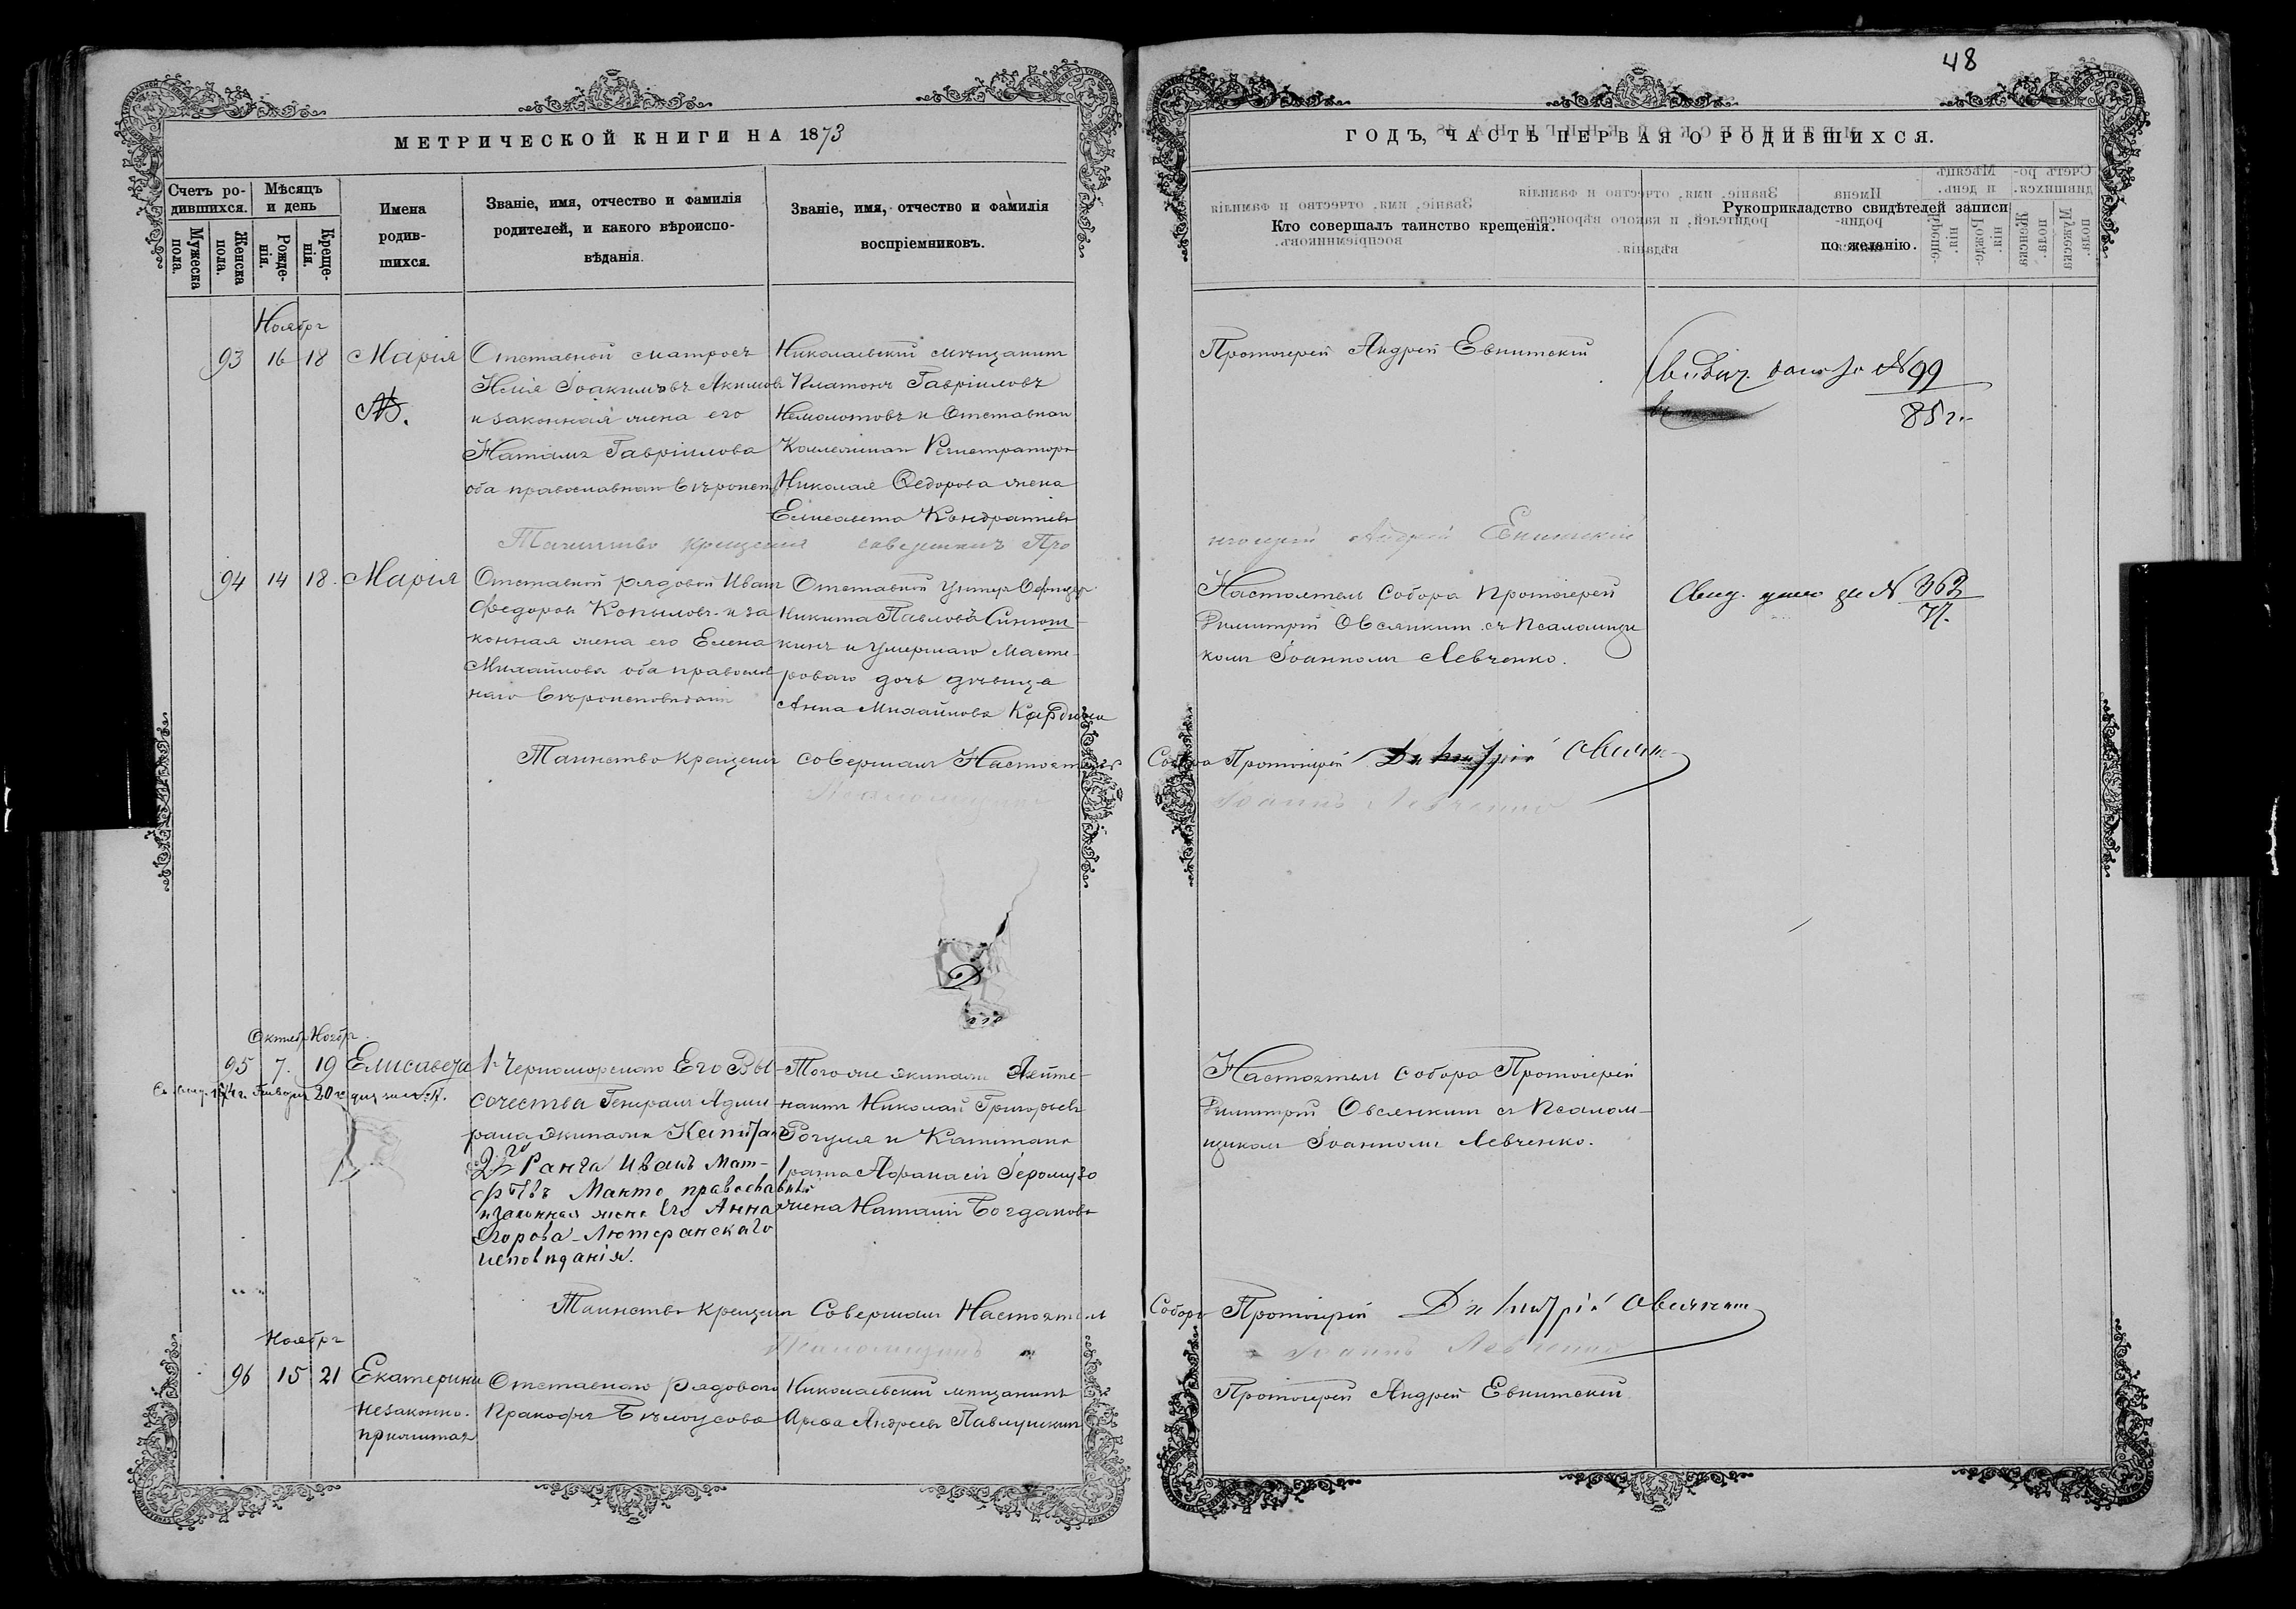 48
МЕТРИЧЕСКОЙ КНИГИ НА 1873
ГОДЪ, ЧАСТЬ ПЕРВАЯ О РОДИВШИХСЯ.
Счетъ ро-
дившихся.
Мужеска пола.
Женска пола.
Мѣсяцъ
и день
Рожде-
нія.
Креще-
нія.
Имена
родив-
шихся.
Званіе, имя, отчество и фамилія
родителей, и какого вѣроиспо-
вѣданія.
Званіе, имя, отчество и фамилія
воспріемниковъ.
Кто совершалъ таинство крещенія.
Рукоприкладство свидѣтелей записи
по желанію.
Ноябрь
93 16 18 Марія
Отставной матросъ
Іоакимовъ Акимовъ
и законная жена его
Гавріилова
оба православнаго
Николаевскій мѣщанинъ
Платонъ Гавріиловъ
и Отставнаго
Регистратора
Николая Ѳедорова жена
Елисавета Кондратьева
Протоіерей Андрей
№ 99
85 г.
Таинство крещенія совершилъ Про
тоіерей Андрей
94 14 18 Марія
Отставной рядовой Иванъ
Федоровъ Копыловъ и за
конная жена его Елена
Михайлова оба православ
наго вѣроисповѣданія
Отставной Унтеръ Офицеръ
Никита Павловъ
кинъ и умершаго Масте-
роваго дочь дѣвица
Анна Михайлова
Настоятель Собора Протоіерей
Димитрій Овсянкинъ съ Псаломщи
комъ Іоанномъ Левченко.
Свид. № 363
77.
Таинство крещенія совершилъ Настоятель
Собора Протоіерей Димитрій Овсянкин
Псаломщикъ
Іоаннъ Левченко
Октябр Ноябр.
95 7. 19 Елисавета
1874 г. Января 20
1 Черноморскаго Его Вы-
сочества Генералъ Адми
рала экипажа Капитанъ
2го Ранга Иванъ Мат-
фѣевъ Макто православный
и законная жена Его Анна
Егорова - Лютеранскаго
исповѣданія.
Того же экипажа Лейте-
нантъ Николай Григорьевъ
Рогуля и Капитана
1 ранга Афанасія
жена Наталія Богданова
Настоятель собора Протоіерей
Димитрій Овсянкинъ съ Псалом-
щикомъ Іоанномъ Левченко.
Таинство крещенія Совершилъ Настоятель
Собора Протоіерей Димитрій Овсянкин
Псаломщикъ
Іоаннъ Левченко
Ноябрь
96 15 21 Екатерина
незаконно-
прижитая
Отставнаго рядоваго
Прокофія Бѣлоусова
Николаевскій мѣщанинъ
Андреевъ Павлушкинъ
Протоіерей Андрей